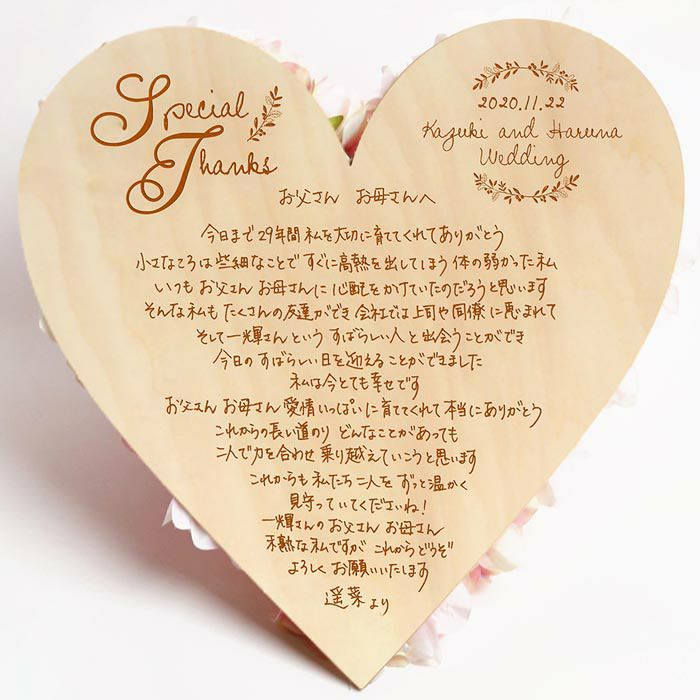 Special
Thanks
2020.11.22
Kazuki and Haruna
Wedding
お父さん お母さんへ
今日まで29年間私を大切に育ててくれてありがとう
小さなころは些細なことですぐに高熱を出してしまう体の弱かった私
いつもお父さんお母さんに心配をかけていたのだろうと思います
そんな私もたくさんの友達ができ会社では上司や同僚に恵まれて
そして一輝さんというすばらしい人と出会うことができ
今日のすばらしい日を迎えることができました
私は今とても幸せです
お父さんお母さん愛情いっぱいに育ててくれて本当にありがとう
これからの長い道のり どんなことがあっても
二人で力を合わせ乗り越えていこうと思います
これからも私たち二人をずっと温かく
見守っていてくださいね!
一輝さんのお父さんお母さん
未熟な私ですが これからどうぞ
よろしくお願いいたします
遥菜より